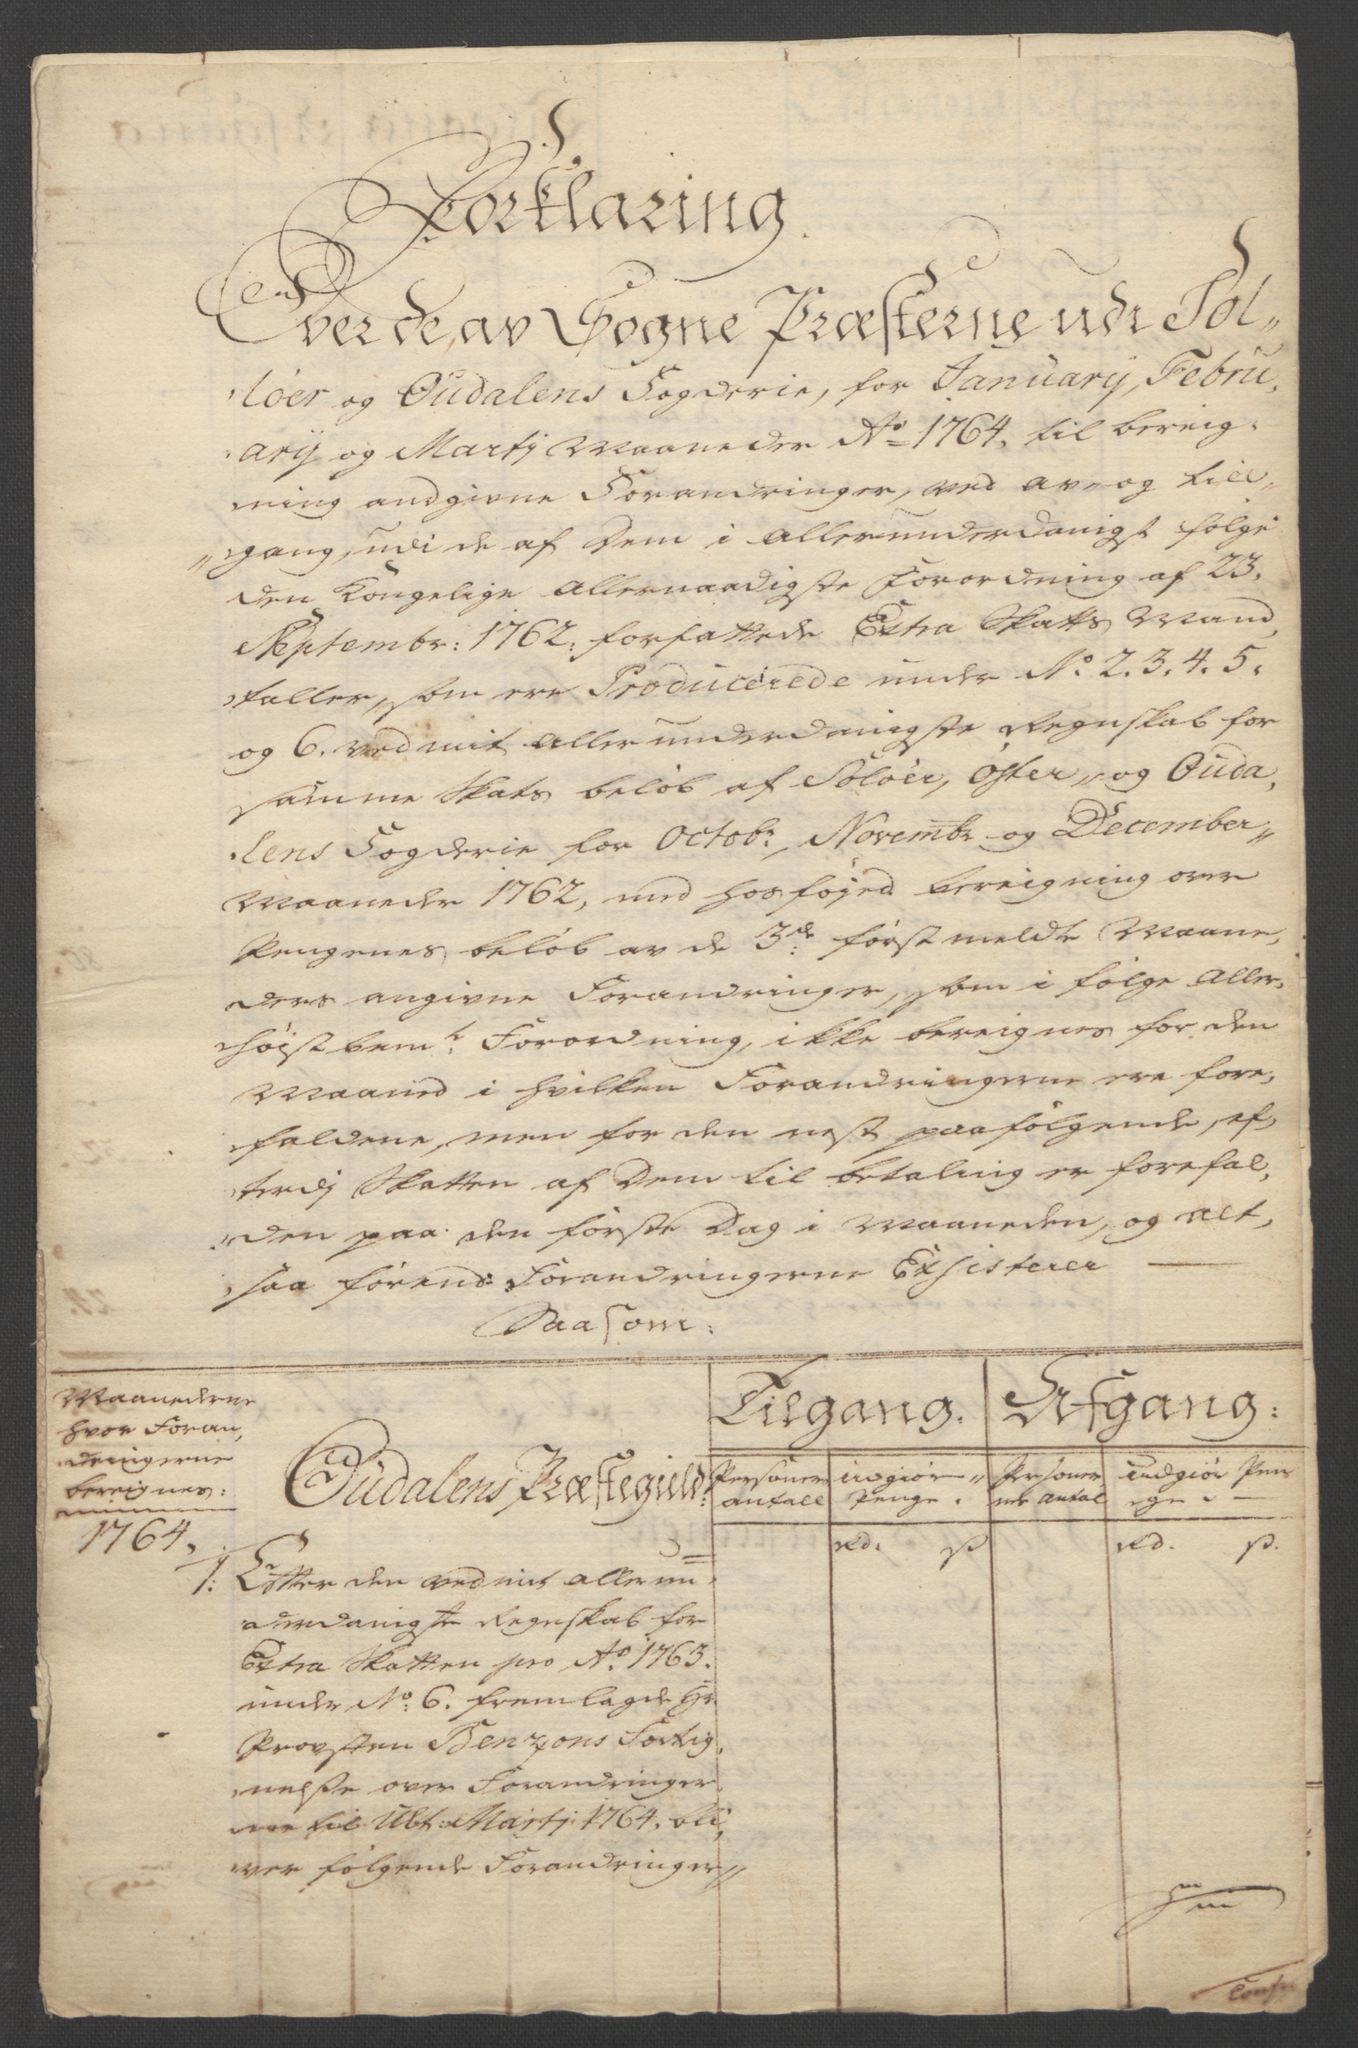 Forklaring
Over de, av Sogne Præsterne udi Sol„
löer og Oudalens Fogderie, for January, Febru,
ary og Martj Maaneder Aō 1764. til bereig,
ning andgivne Forandringer, ved av- og till„
„gang, udi de af Dem i allerunderdanigst følge
den Kongelige allernaadigste Forordning af 23.
Septembr: 1762. forfattede Extra Skatts Mand,
taller, som ere Producerede under No. 2. 3. 4. 5.
og 6. ved mit allerunderdanigste Regnskab for
samme Skats beløb af Soløer, Øster„ og Ouda,
lens Fogderie for Octobr:, Novembr: og December„
Maaneder 1762, med hosføjed bereigning over
Pengenes beløb av de 3de: først meldte Maane,
ders angivne Forandringer, som i følge Aller,
høist bemte: Forordning, ikke bereignes for den
Maaned i hvilken Forandringerne ere fore,
faldene, men for den nest paafølgende, ef,
terdj Skatten af Dem til betaling er forefal,
den paa den første Dag i Maaneden, og alt,
saa førend Forandringerne Exsisterer —
Saasom:
Maanederne
hvor Foran,
dringerne
bereignes:
1764,
Oudalens Præstegield:
Tilgang. Afgang:
Personer
antall
udgiör„
Penge.
Personer
nes antal
udgiör Pen
ge. —
rd. ß rd. ß.
1: Efter den ved mit allerun,
derdanigste Regnskab for
Extra Skatten pro Aō 1763.
under No: 6. fremlagde Hr
Provsten Benzons Forteg,
nelse over Forandringer,
ne til Ult: Martj 1764. bli,
ver følgende Forandringer„